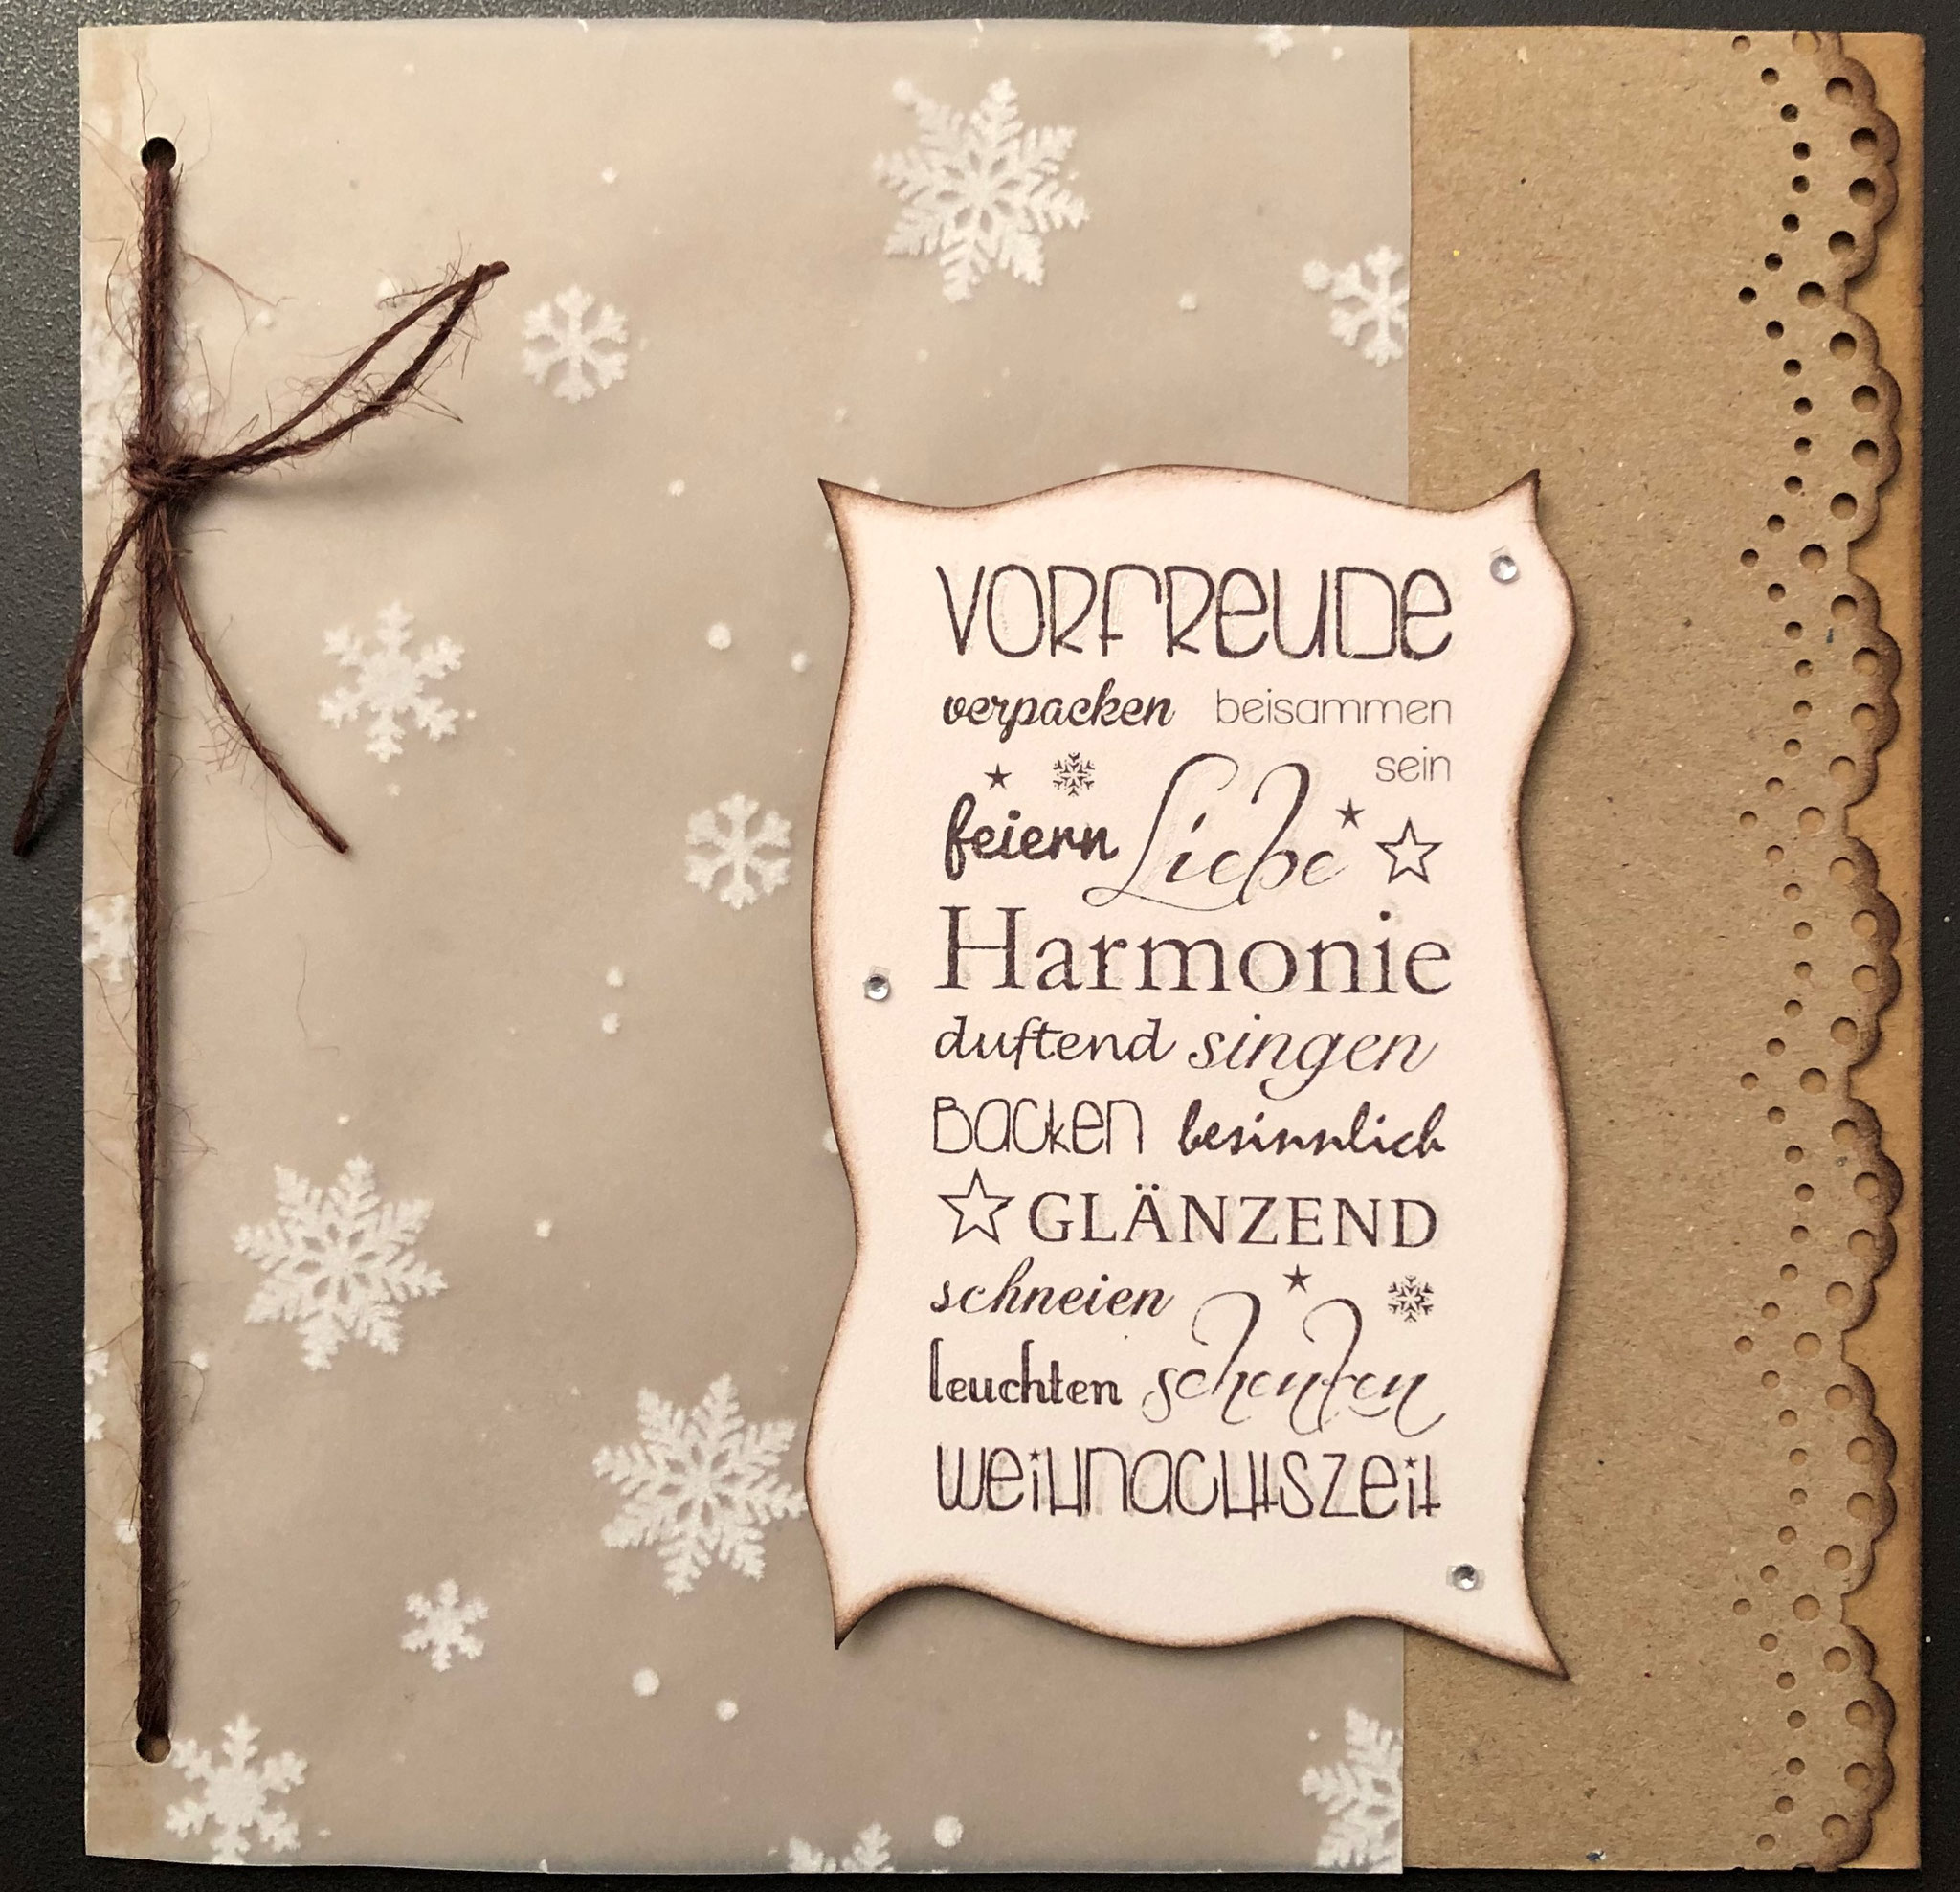 VORFREUDE
verpacken beisammen
sein
feiern Liebe
Harmonie
duftend singen
Backen besinnlich
GLÄNZEND
schneien
leuchten schenken
Weihnachtszeit